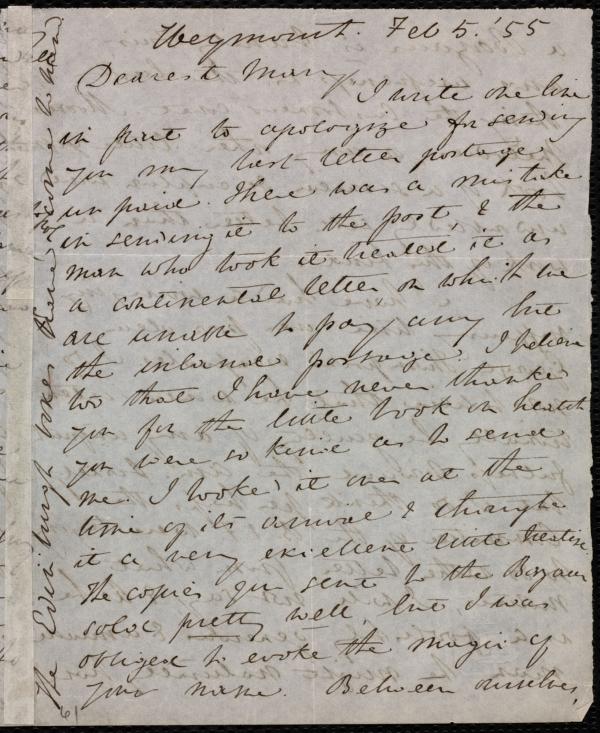 Weymouth. Feb 5. '55
Dearest Mary
I write one line
in part to apologize for sending
you my last letter postage
unpaid. There was a mistake
in sending it to the post, & the
man who took it treated it as
a continental letter on which we
are unable to pay any but
the inland postage. I believe
too that I have never thanked
you for the little book on health
you were so kind as to send
me. I looked it over at the
time of its arrival & thought
it a very excellent little treatise
The copies you sent to the Bazaar
sold pretty well, but I was
obliged to evoke the magic of
your name. Between ourselves,
The Edinburgh boxes have come to hand
6